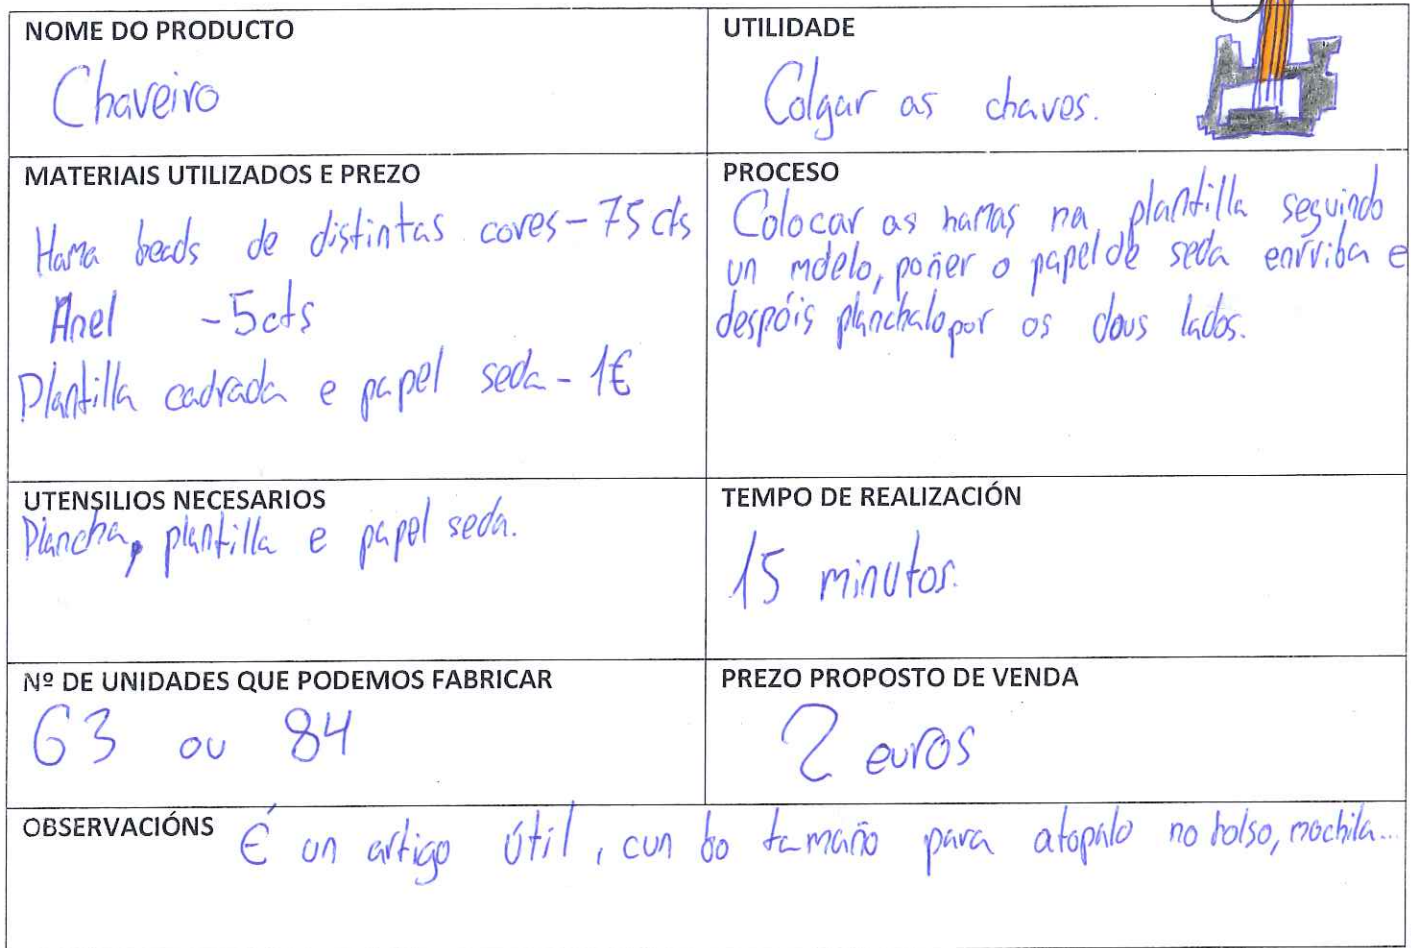 NOME DO PRODUCTO
Chaveiro
UTILIDADE
Colgar as chaves.
MATERIAIS UTILIZADOS E PREZO
Hama beads de distintas cores - 75 cts
Anel - 5 cts
Plantilla cadrada e papel seda - 1€
PROCESO
Colocar as hamas na plantilla seguindo
un mdelo, poñer o papel de seda enrriba e
despóis plánchalo por os dous lados.
UTENSILIOS NECESARIOS
Plancha, plantilla e papel seda.
TEMPO DE REALIZACIÓN
15 minutos.
Nº DE UNIDADES QUE PODEMOS FABRICAR
63 ou 84
PREZO PROPOSTO DE VENDA
2 euros
OBSERVACIÓNS É un artigo útil, cun bo tamaño para atopalo no bolso, mochila...